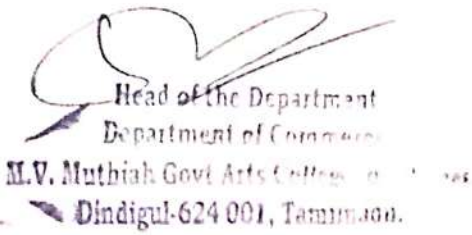 Head of the Department
Department of Commerce
M.V. Muthiah Govt Arts College
Dindigul-624 001, Tamilnadu.